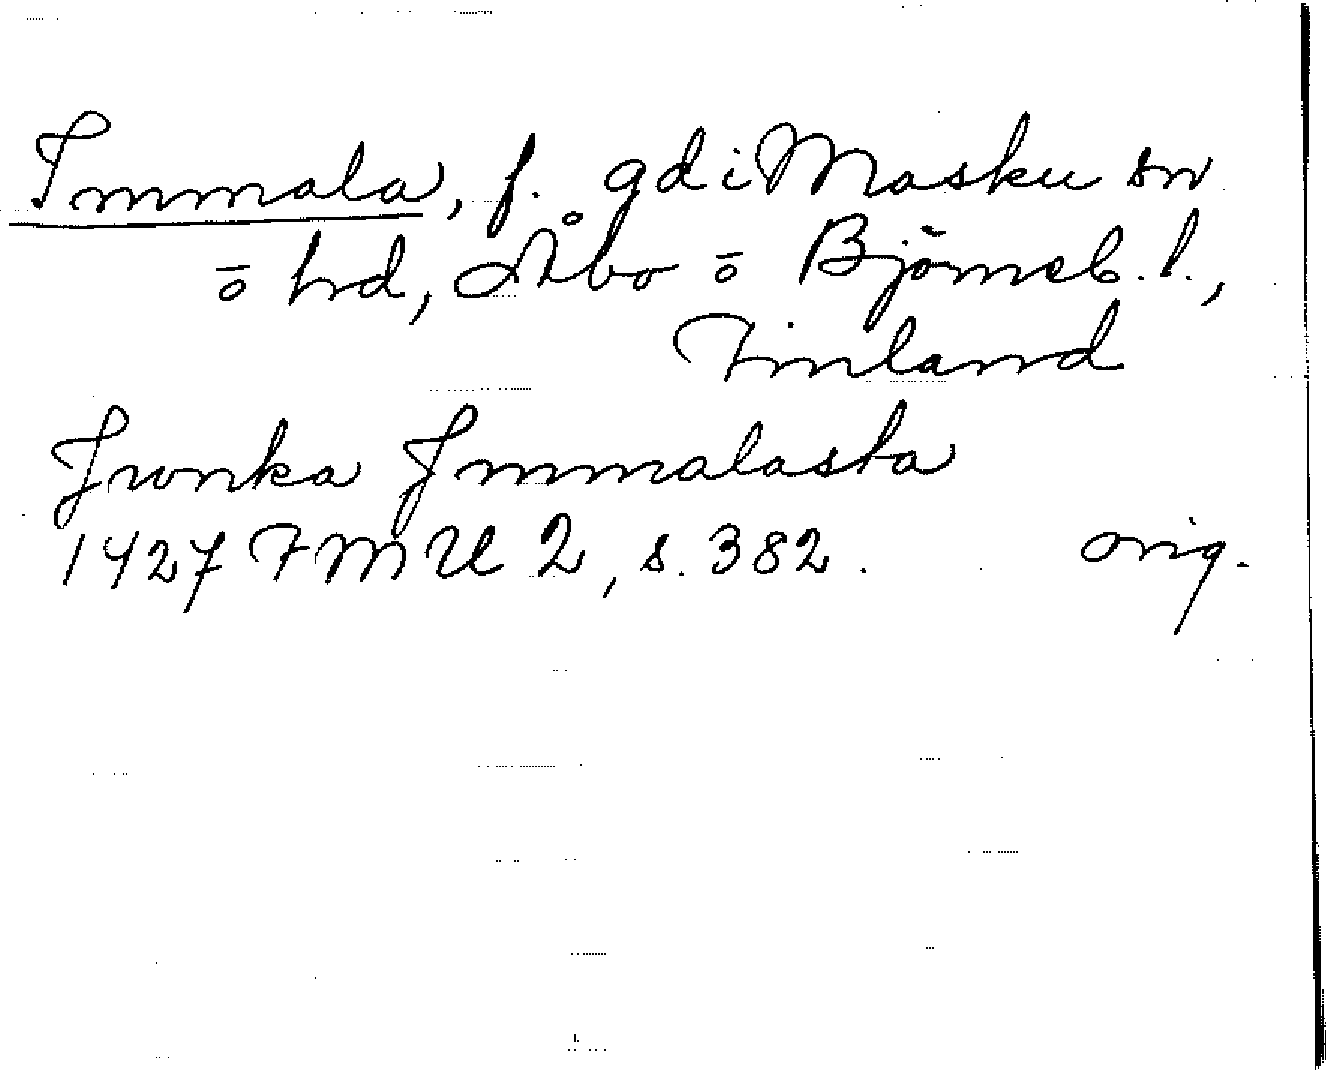 Immala, f. gd i Masku sn
o hd, Åbo o Björneb. l.,
Finland
Junka Jmmalasta
1427 FMU 2, s. 382. orig.